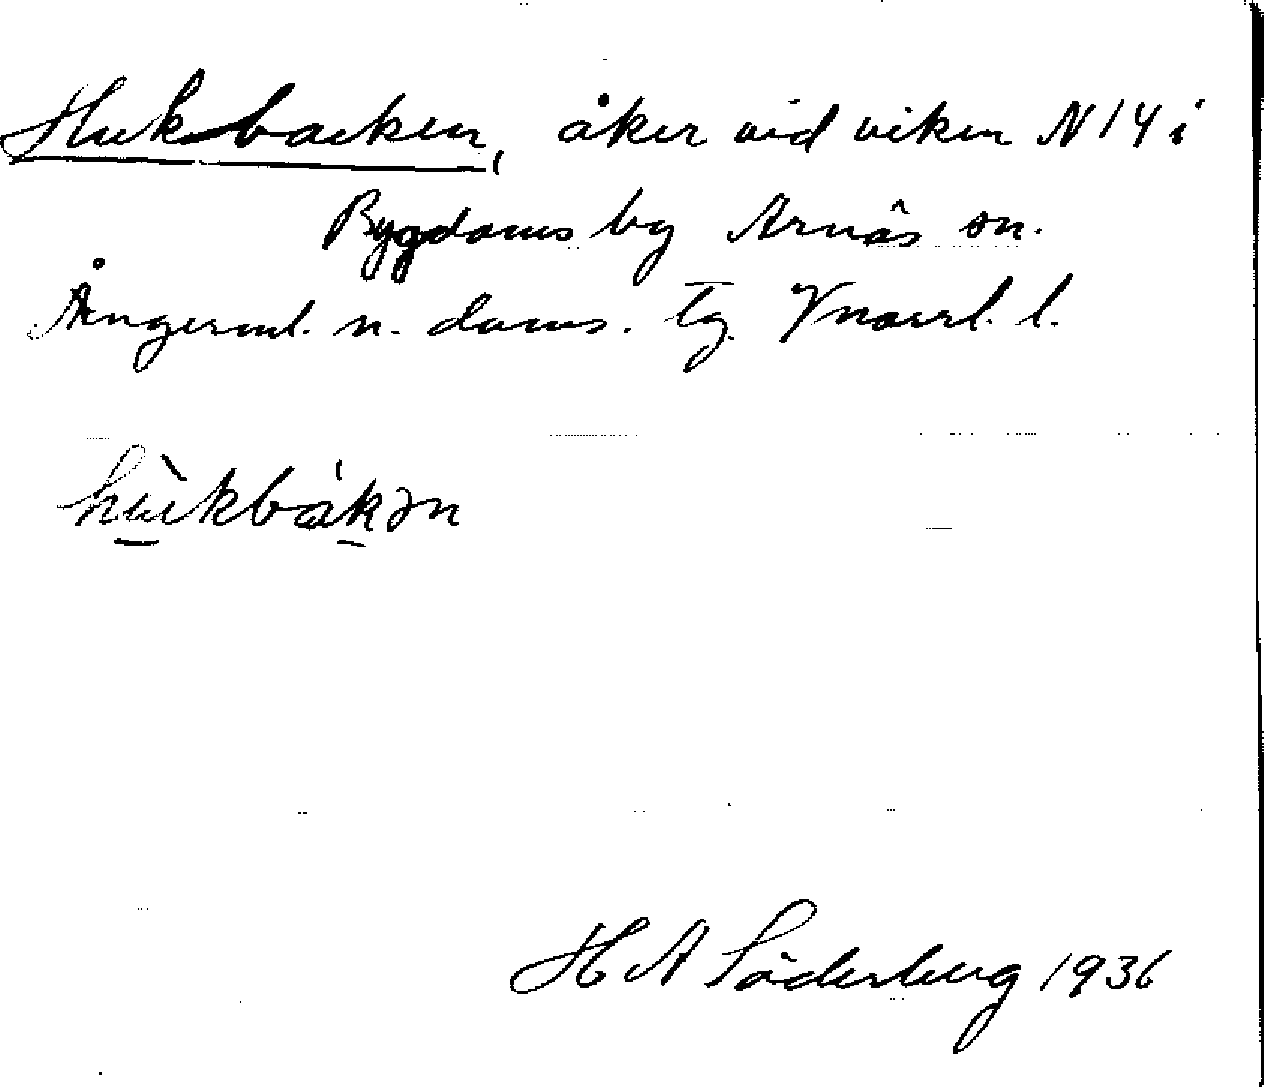 Hukbacken, åker vid viken N 14 i
Bygdoms by Arnäs sn.
Ångerml. n. doms. tg. Vnorrl. l.
hùkbákən
H A Söderberg 1936